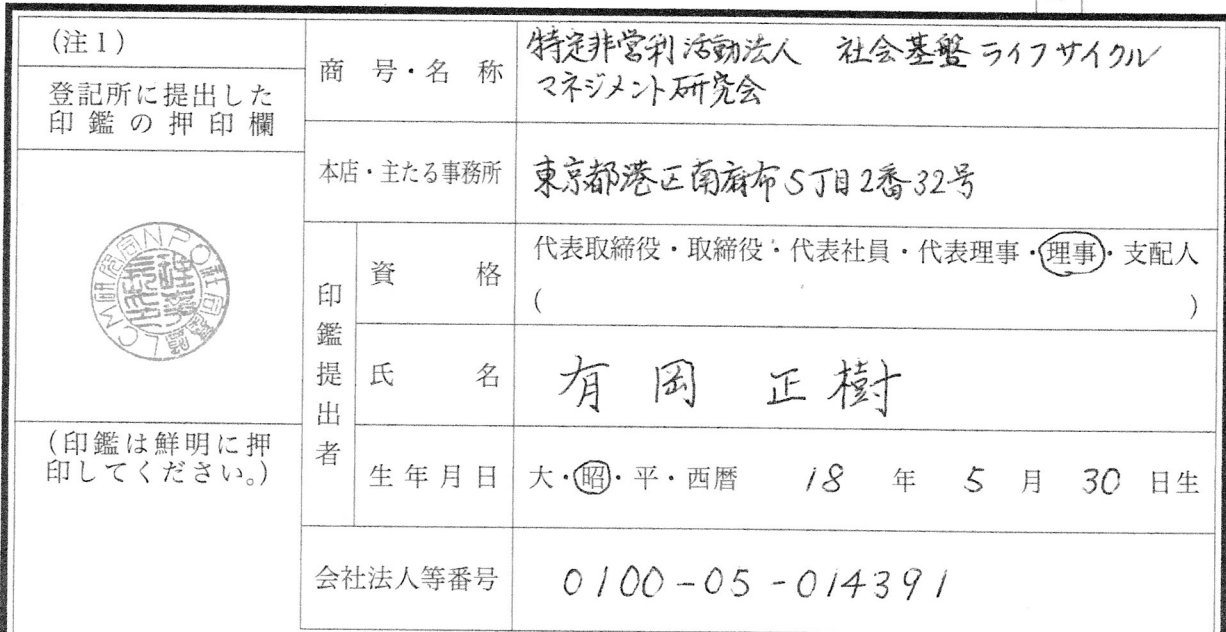 (注1)
登記所に提出した
印鑑の押印欄
(印鑑は鮮明に押
印してください。)
商号・名称
特定非営利活動法人 社会基盤ライフサイクル
マネジメント研究会
本店・主たる事務所
東京都港区南麻布5丁目2番32号
印鑑提出者
資格
代表取締役・取締役・代表社員・代表理事・理事・支配人
( )
氏名
有岡 正樹
生年月日
大・昭・平・西暦 18 年 5 月 30 日生
会社法人等番号
0100-05-014391